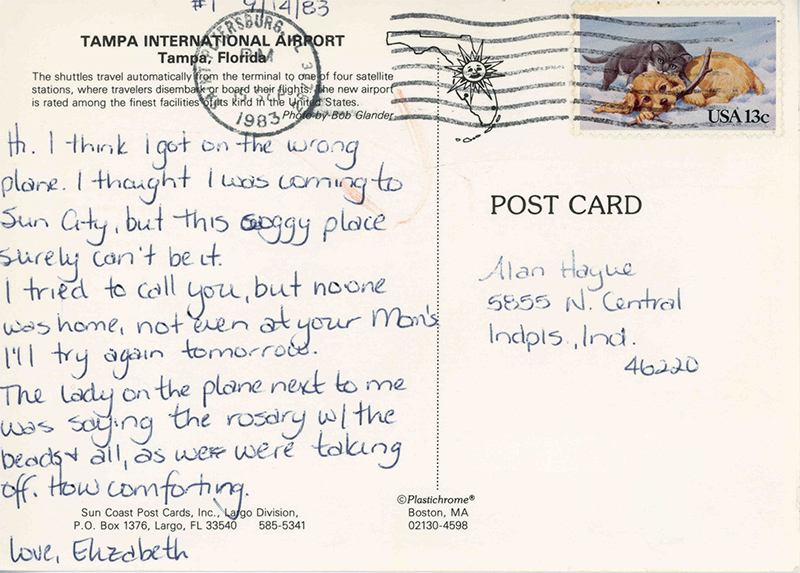 #1 9/14/83
TAMPA INTERNATIONAL AIRPORT
Tampa, Florida
The shuttles travel automatically from the terminal to one of four satellite
stations, where travelers disembark or board their flights. The new airport
is rated among the finest facilities of its kind in the United States.
Photo by Bob Glander
ST PETERSBURG, FL
PM
SEP
1983
USA 13c
Hi. I think I got on the wrong
plane. I thought I was coming to
Sun City, but this soggy place
surely can't be it.
I tried to call you, but no one
was home, not even at your Mom's
I'll try again tomorrow.
The lady on the plane next to me
was saying the rosary w/ the
beads & all, as we were taking
off. How comforting.
Love, Elizabeth
Sun Coast Post Cards, Inc., Largo Division,
P.O. Box 1376, Largo, FL 33540 585-5341
POST CARD
Alan Hague
5855 N. Central
Indpls., Ind.
46220
©Plastichrome®
Boston, MA
02130-4598